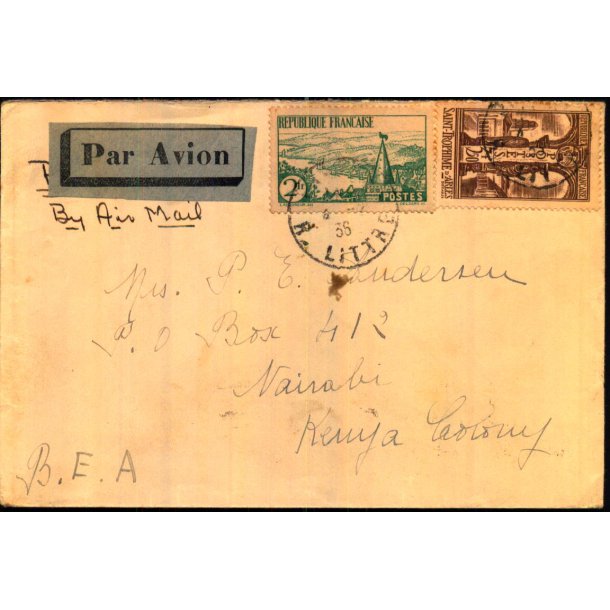 Par Avion
By Air Mail
REPUBLIQUE FRANÇAISE
2F
POSTES
SAINT-TROPHIME D'ARLES
POSTES
36
R. LITTRE
Mrs. P. E. Andersen
P.O Box 412
Nairabi
Kenya Colony
B.E.A